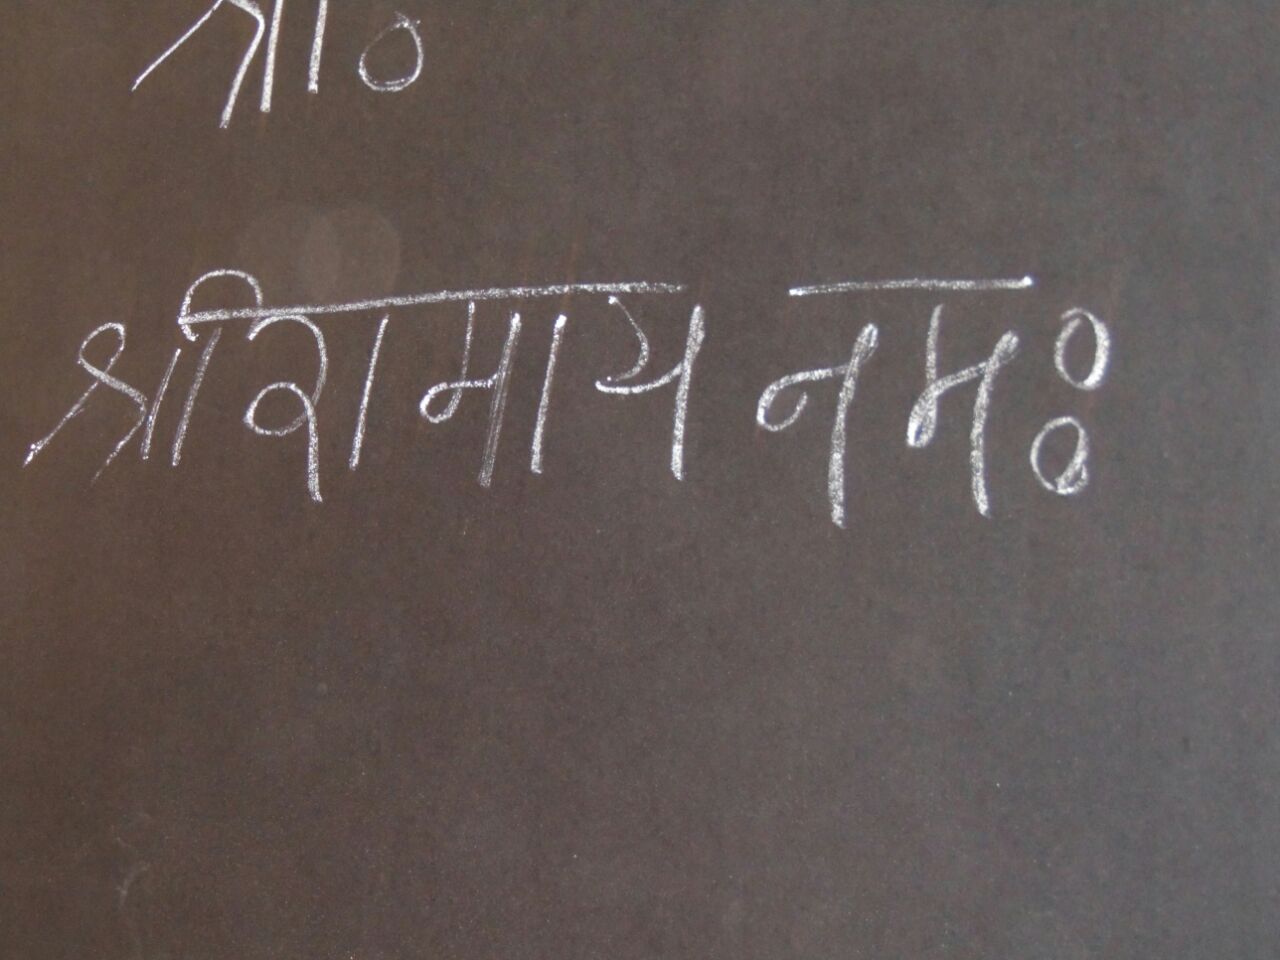 श्री०
श्रीरामाय नमः